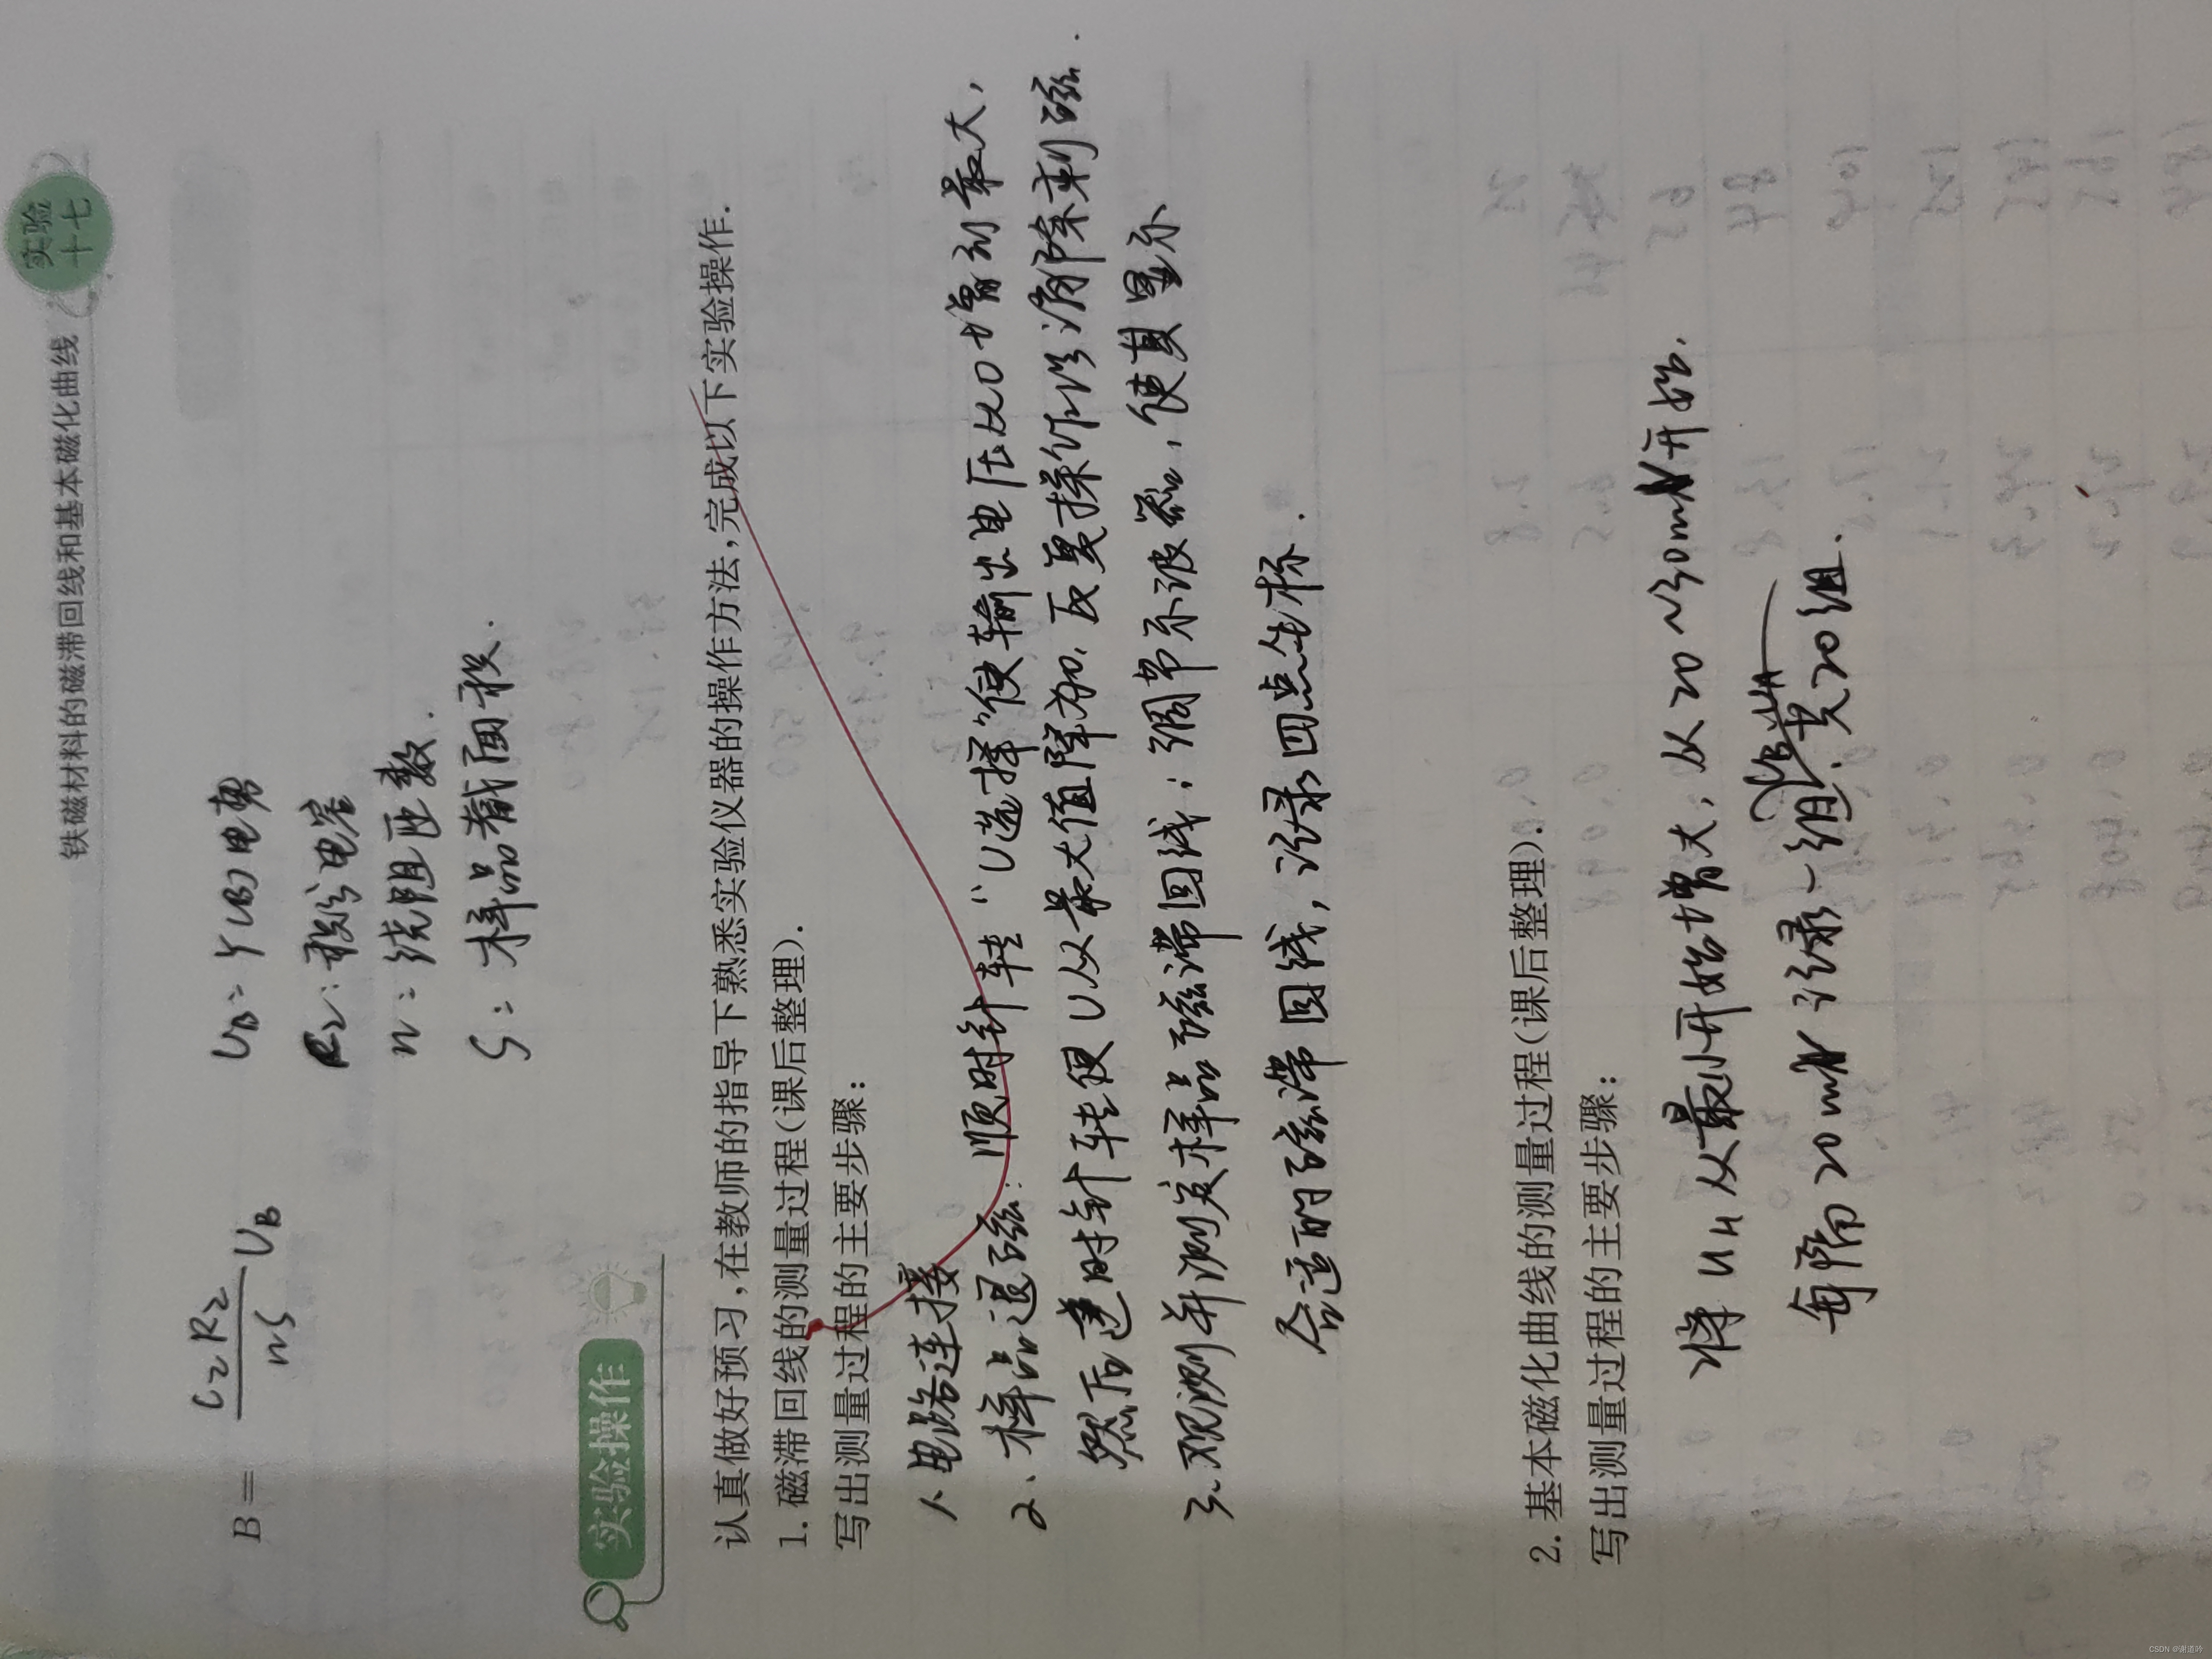 铁磁材料的磁滞回线和基本磁化曲线
实验
十七
B = C₂R₂/nS U_B
U_B = Y(B)电势
R₂:积分电容
n:绕阻匝数.
S:样品截面积.
实验操作
认真做好预习,在教师的指导下熟悉实验仪器的操作方法,完成以下实验操作.
1.磁滞回线的测量过程(课后整理).
写出测量过程的主要步骤:
1、电路连接
2、样品退磁:顺时针转“U选择”使输出电压从0增到最大,
然后逆时针转使U从最大值降为0.反复操作以消除剩磁.
3、观测并测定样品磁滞回线;调节示波器,使其显示
合适的磁滞回线,记录四点坐标.
2.基本磁化曲线的测量过程(课后整理).
写出测量过程的主要步骤:
将U_H从最小开始增大,从20~30mV开始.
每隔20mV记录一组.共20组.
CSDN @谢道吟